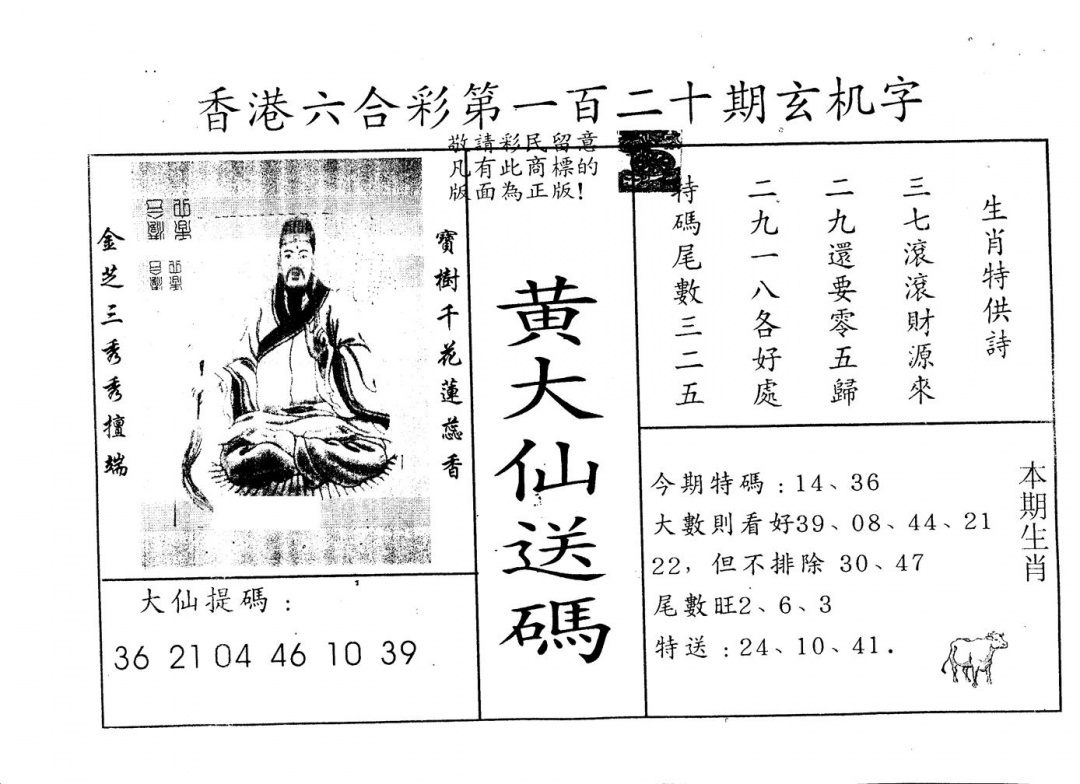 香港六合彩第一百二十期玄机字
敬請彩民留意
凡有此商標的
版面為正版!
寶樹千花蓮蕊香
金芝三秀秀擅端
大仙提碼：
36 21 04 46 10 39
黄大仙送碼
生肖特供詩
三七滾滾財源來
二九還要零五歸
二九一八各好處
特碼尾數三二五
本期生肖
今期特碼：14、36
大數則看好39、08、44、21
22，但不排除 30、47
尾數旺2、6、3
特送：24、10、41.